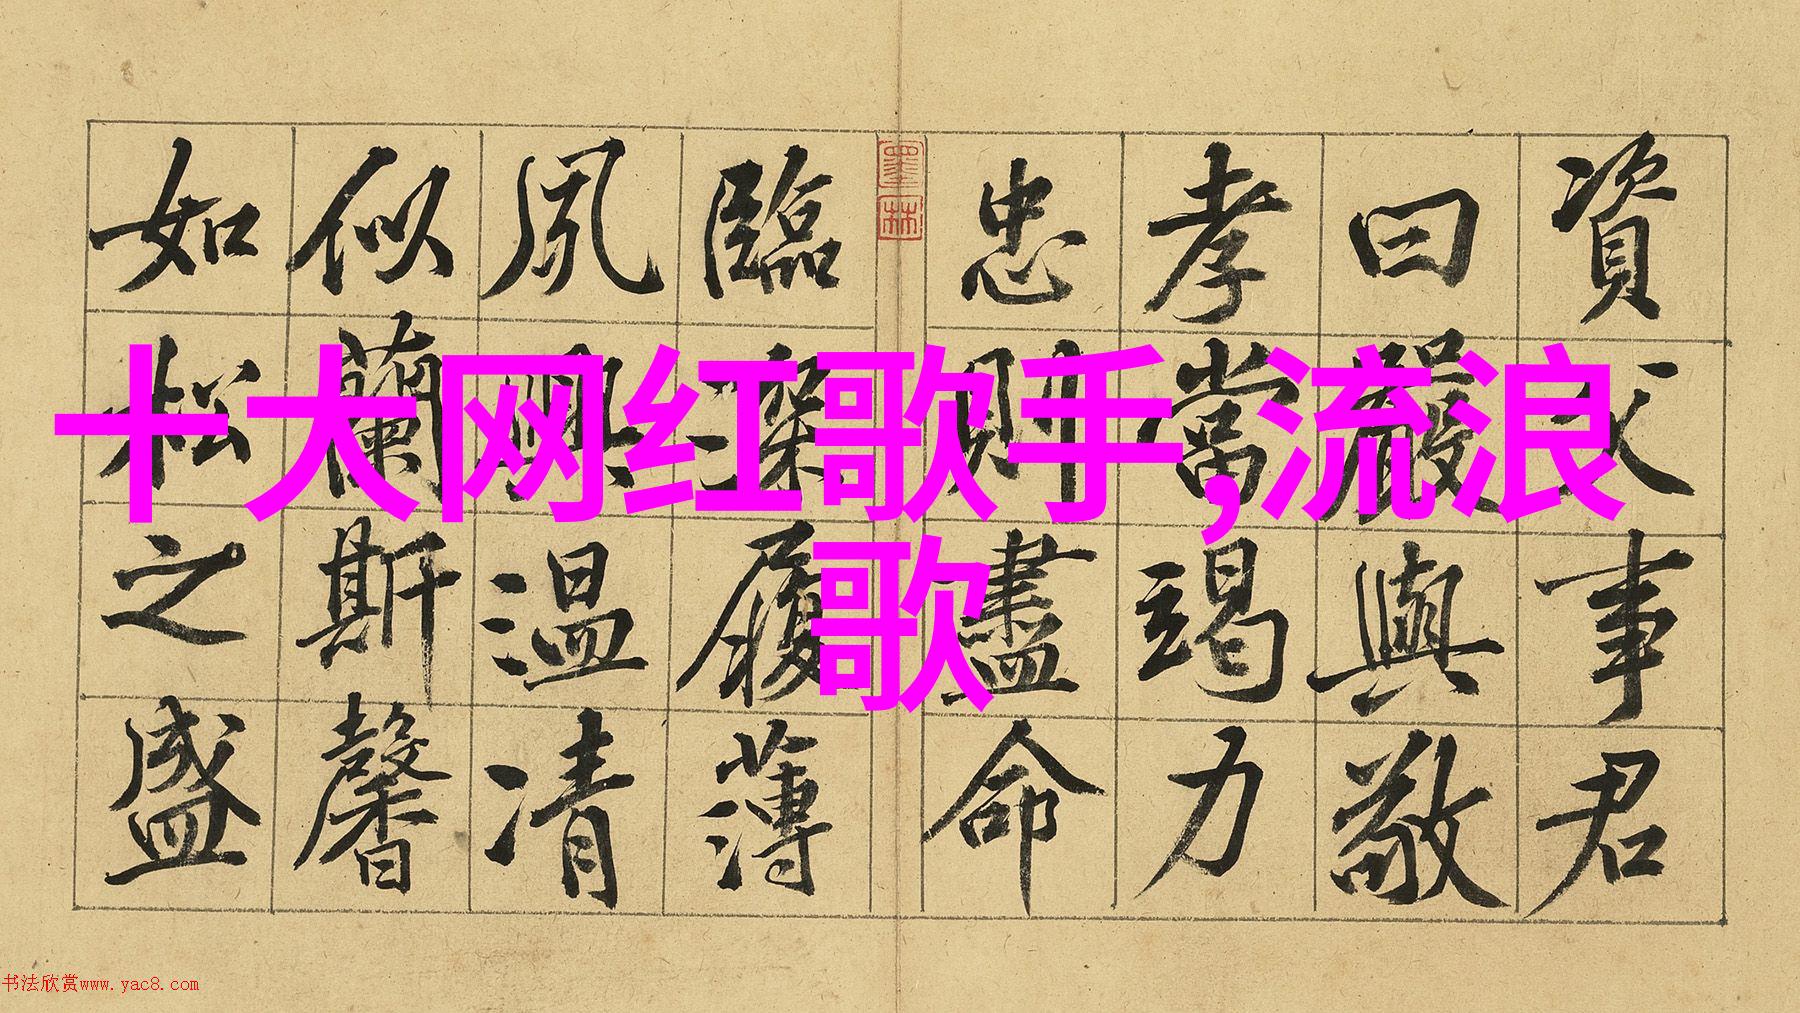 資父事君
曰嚴與敬
孝當竭力
忠則盡命
臨深履薄
夙興温凊
似蘭斯馨
如松之盛
墨林
十大网红歌手,流浪
歌
书法欣赏www.yac8.com